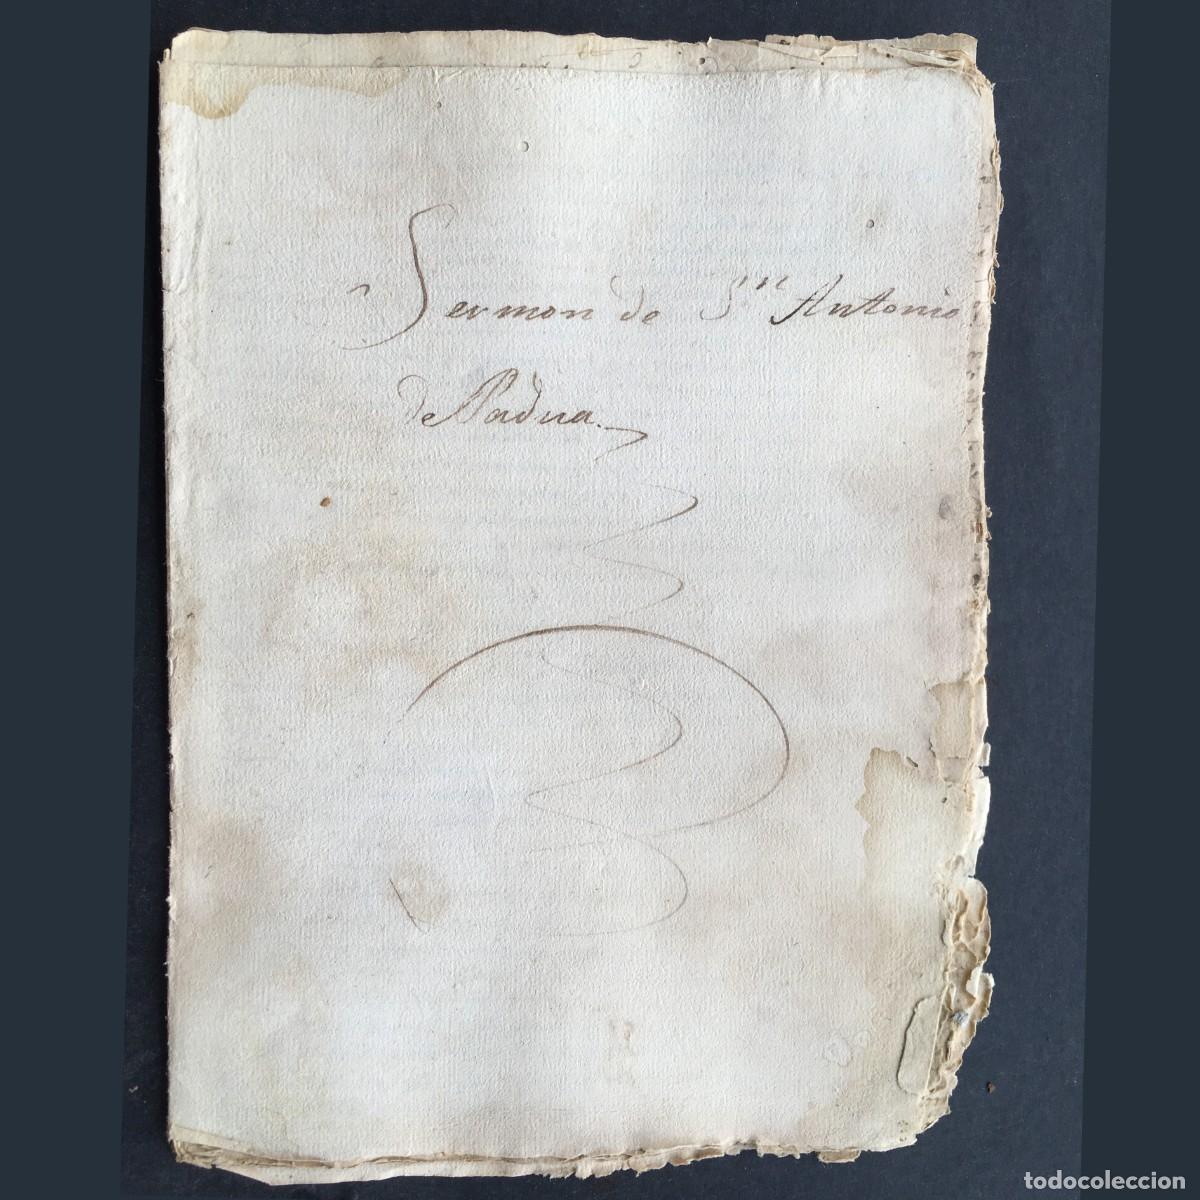 Sermon de Sn Antonio
de Padua.
todocoleccion